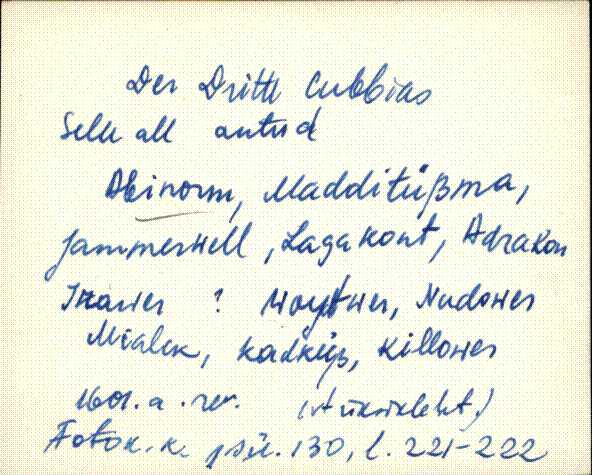 Der Dritte Cubbias
Selle all antud
Abinorm, Madditüßma,
Jammerwell, Lagakont, Adrakon
Ikawer ? Woytwer, Nudower
Mialek, Kadküß, Killower
1601. a. rev. (vt üksikleht)
Fotok. k. 130, l. 221-222